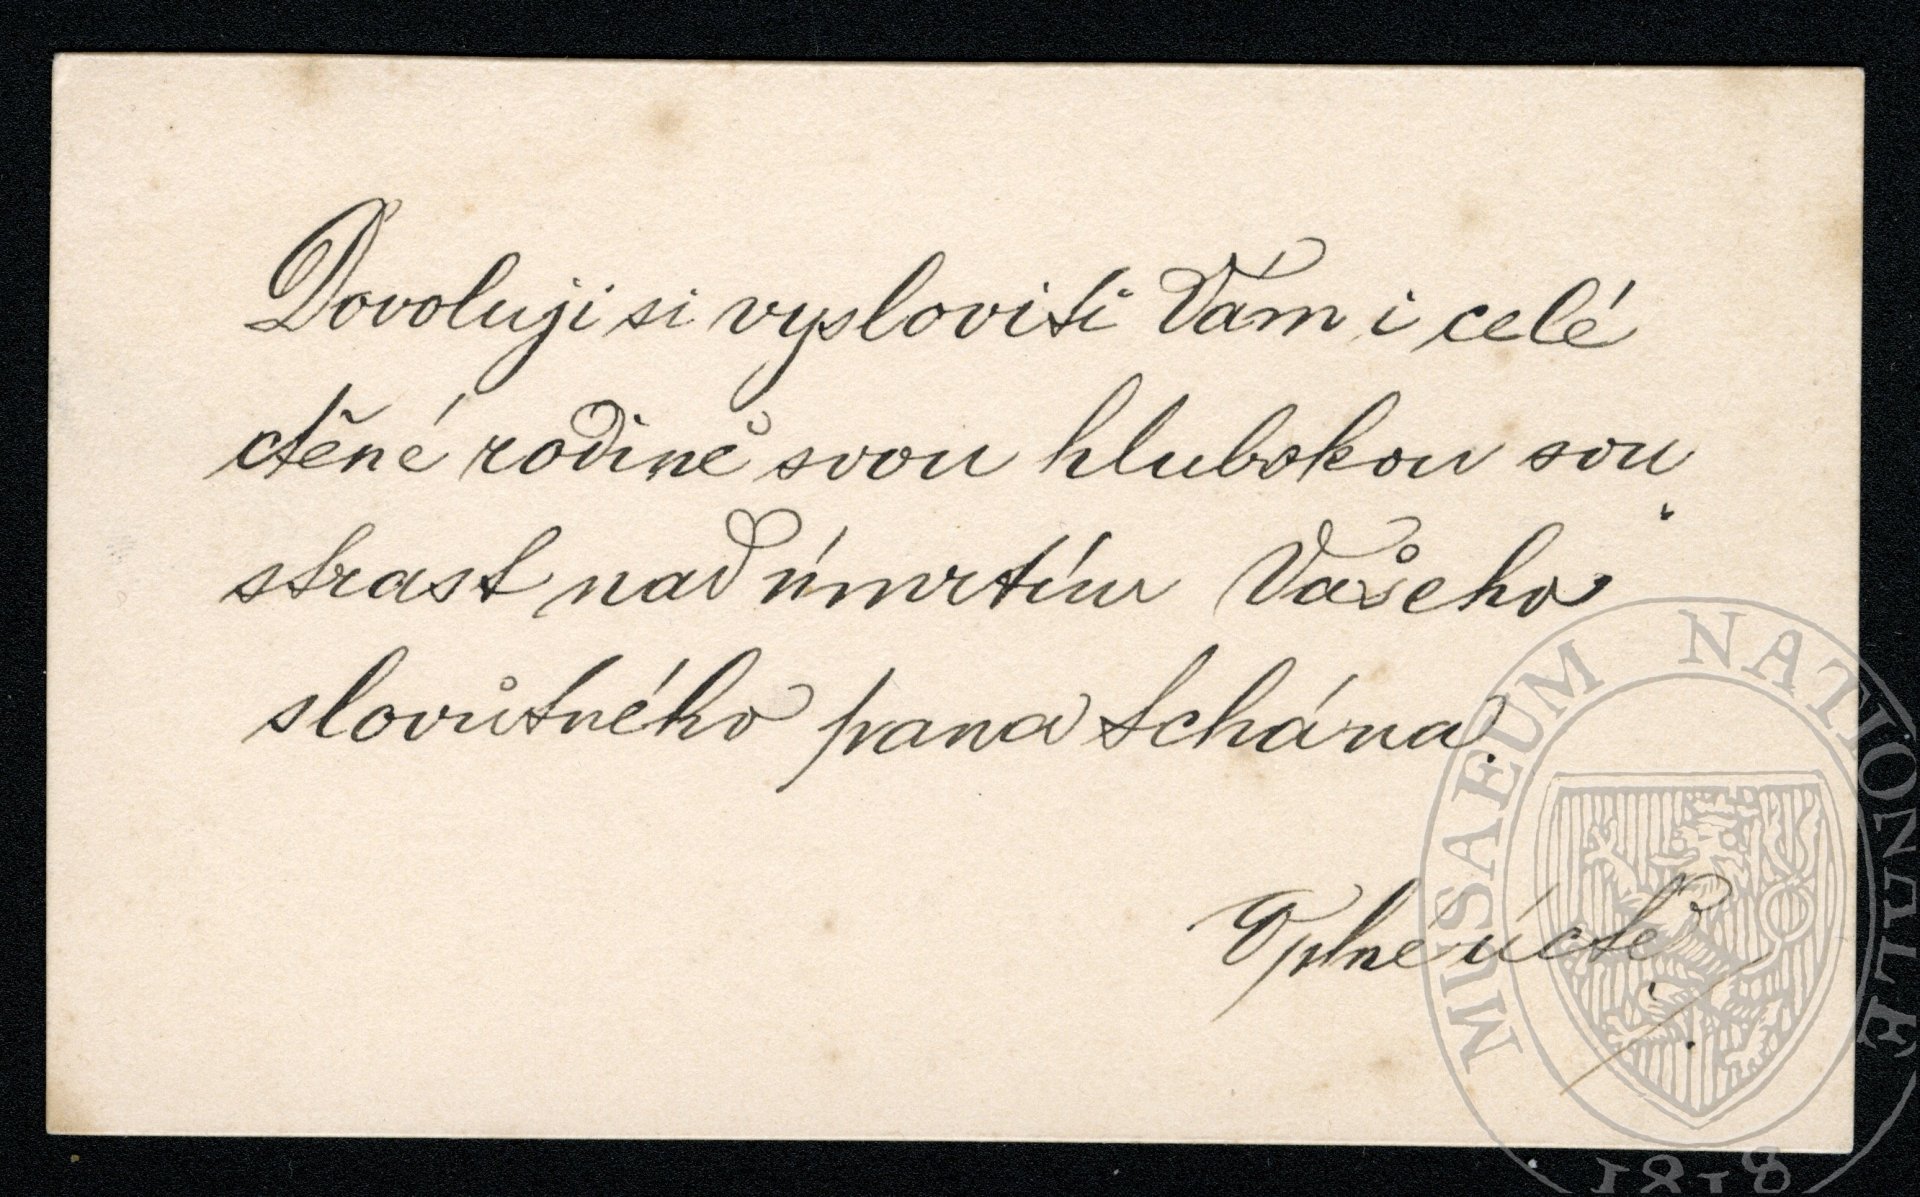 Dovoluji si vysloviti Vám i celé
ctěné rodině svou hlubokou sou
strast nad úmrtím Vašeho
slovůtného pana tchána.
V plné úctě
MUSAEUM NATIONALE
1818